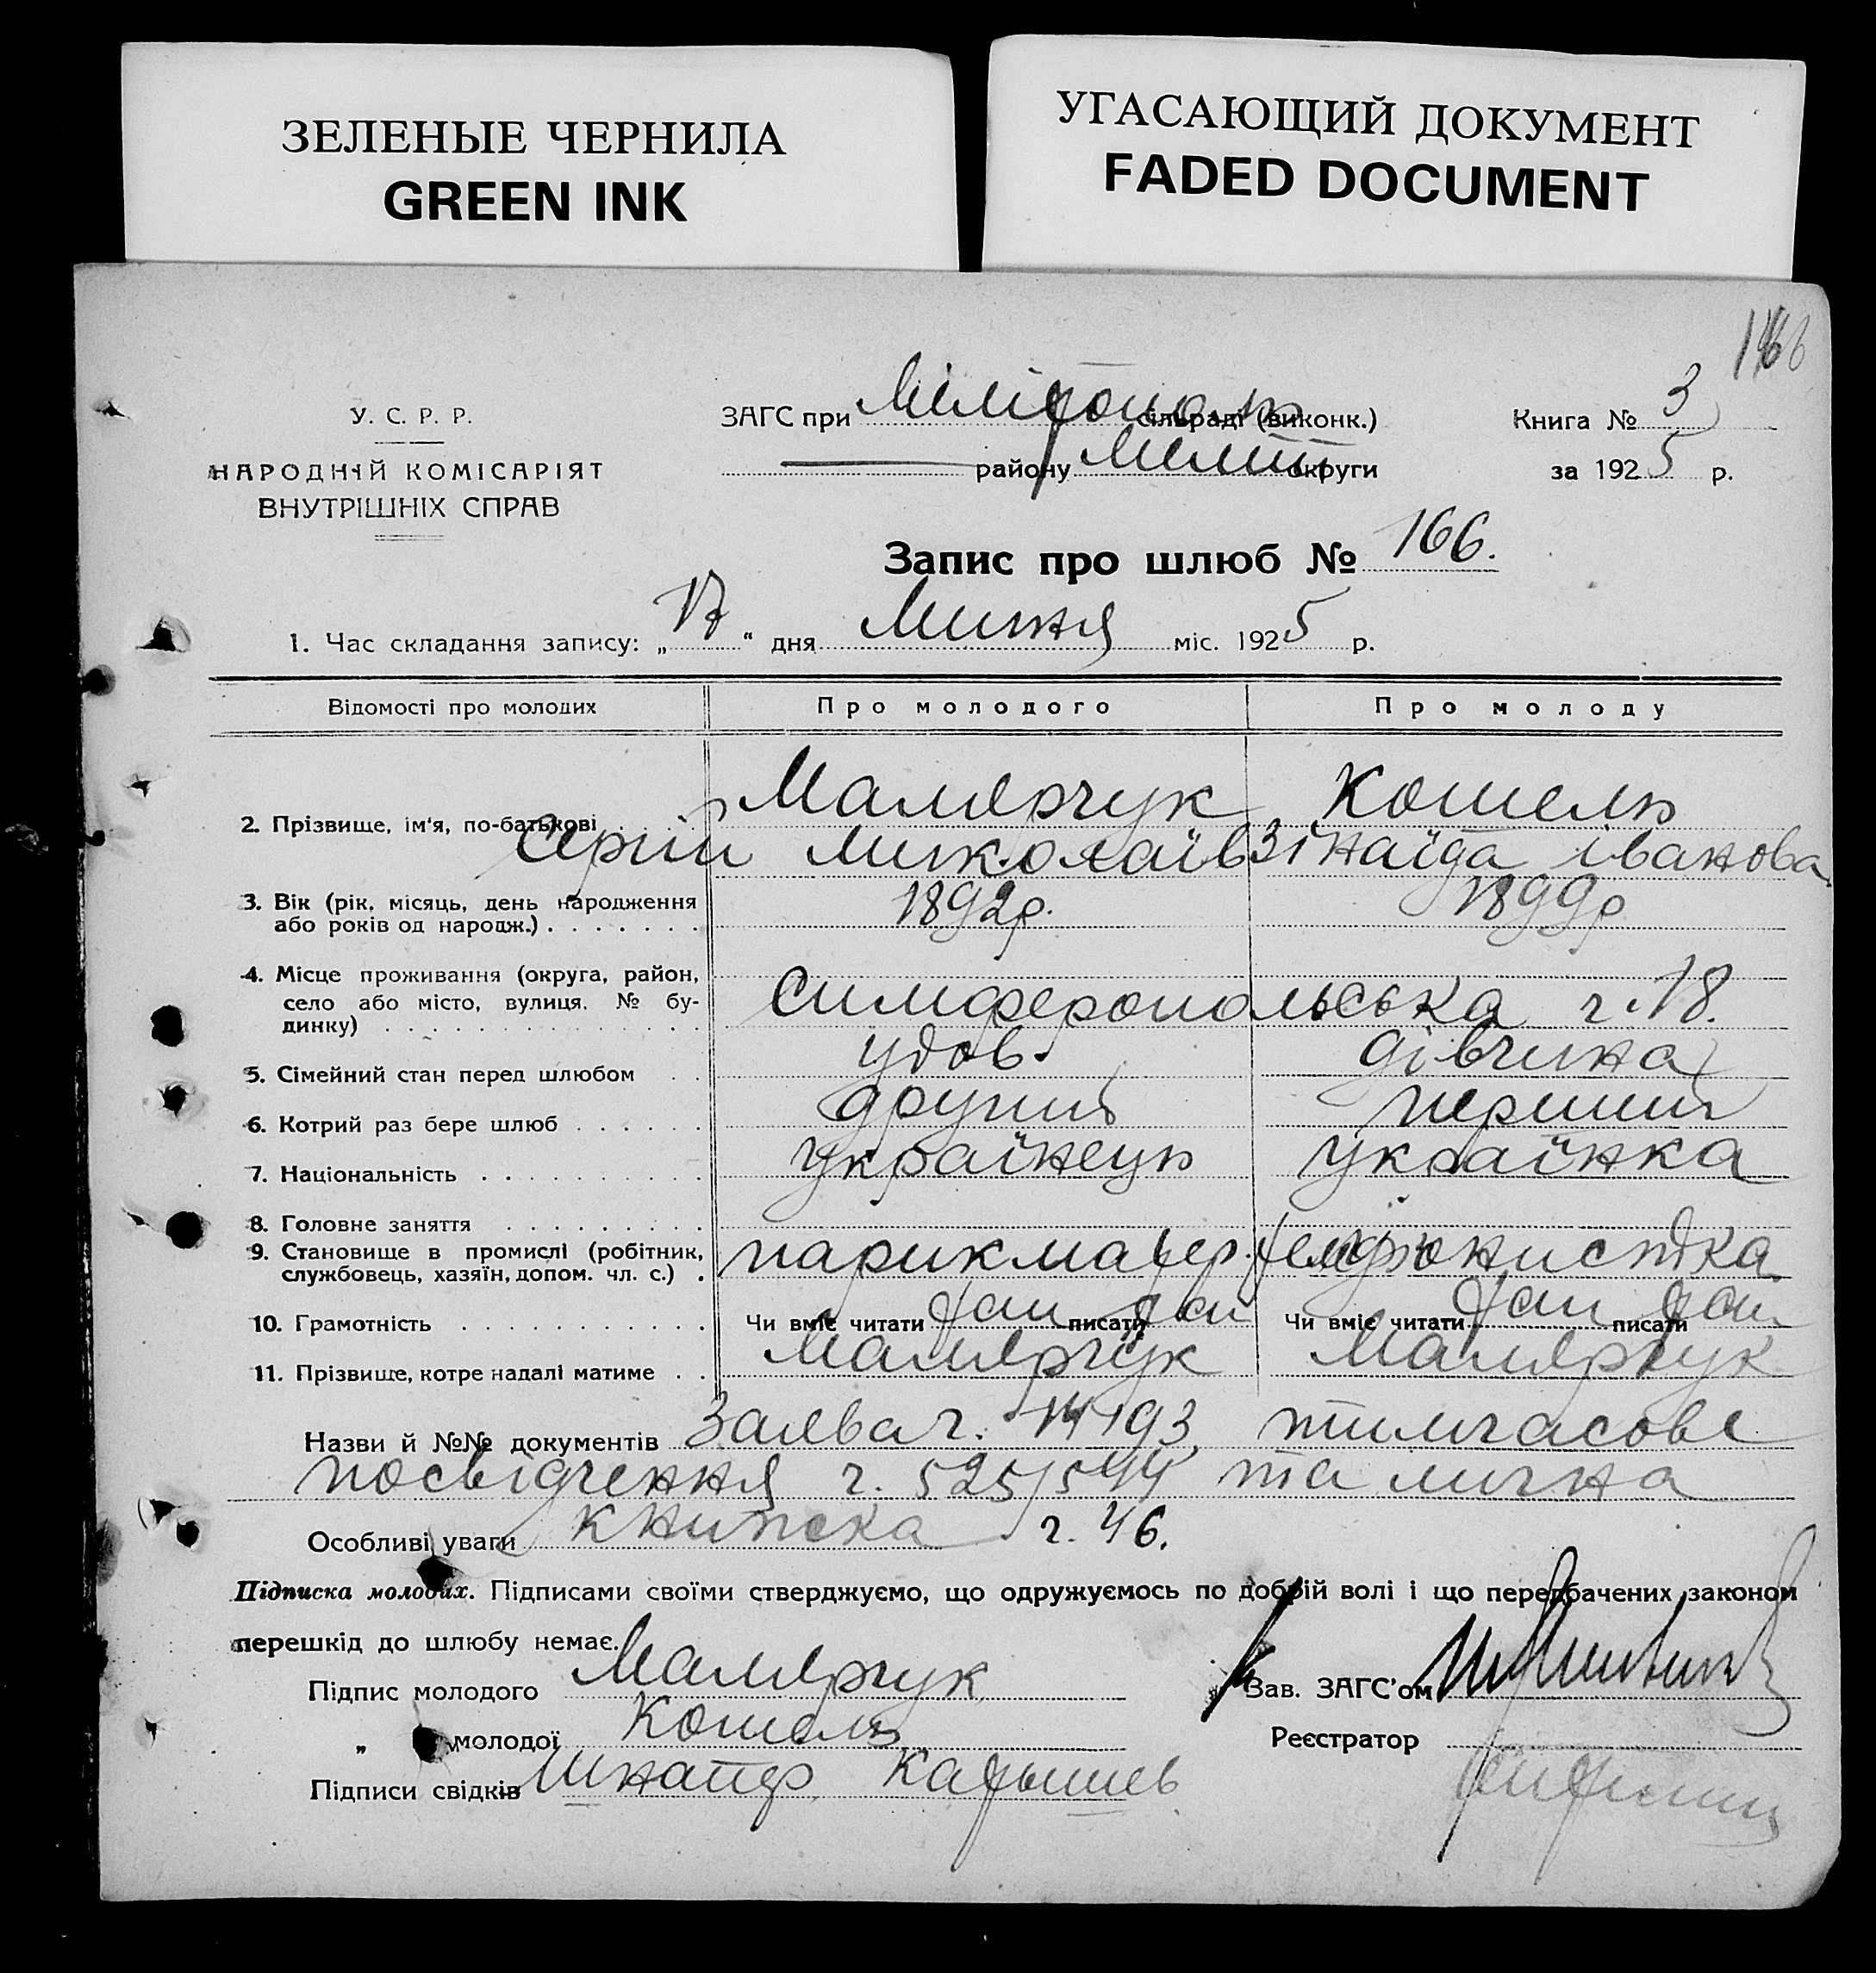 ЗЕЛЕНЫЕ ЧЕРНИЛА
GREEN INK
УГАСАЮЩИЙ ДОКУМЕНТ
FADED DOCUMENT
У. С. Р. Р.
НАРОДНІЙ КОМІСАРІЯТ
ВНУТРІШНІХ СПРАВ
ЗАГС при сільраді (виконк.)
району Меліт округи
Книга № 3
за 1925 р.
Запис про шлюб № 166.
1. Час складання запису: „ “ дня Липня міс. 1925 р.
Відомості про молодих Про молодого Про молоду
2. Прізвище, ім'я, по-батькові Малярчук Кошель
Сергій Миколаїв Зінаїда Іванова
3. Вік (рік, місяць, день народження або років од народж.) 1892р. 1899р
4. Місце проживання (округа, район, село або місто, вулиця. № будинку) Симферопольська ч. 18.
5. Сімейний стан перед шлюбом удов. дівчина
6. Котрий раз бере шлюб другий перший
7. Національність українець українка
8. Головне заняття
9. Становище в промислі (робітник, службовець, хазяїн, допом. чл. с.) парикмахер.
10. Грамотність Чи вміє читати так писати так Чи вміє читати так писати так
11. Прізвище, котре надалі матиме Малярчук Малярчук
Назви й №№ документів Заява ч. тимчасове
посвідчення ч. 525/544 та лична
Особливі уваги книжка ч. 46.
Підписка молодих. Підписами своїми стверджуємо, що одружуємось по добрій волі і що передбачених законом
перешкід до шлюбу немає.
Підпис молодого Малярчук
„ молодої Кошель
Підписи свідків
Зав. ЗАГС'ом
Реєстратор